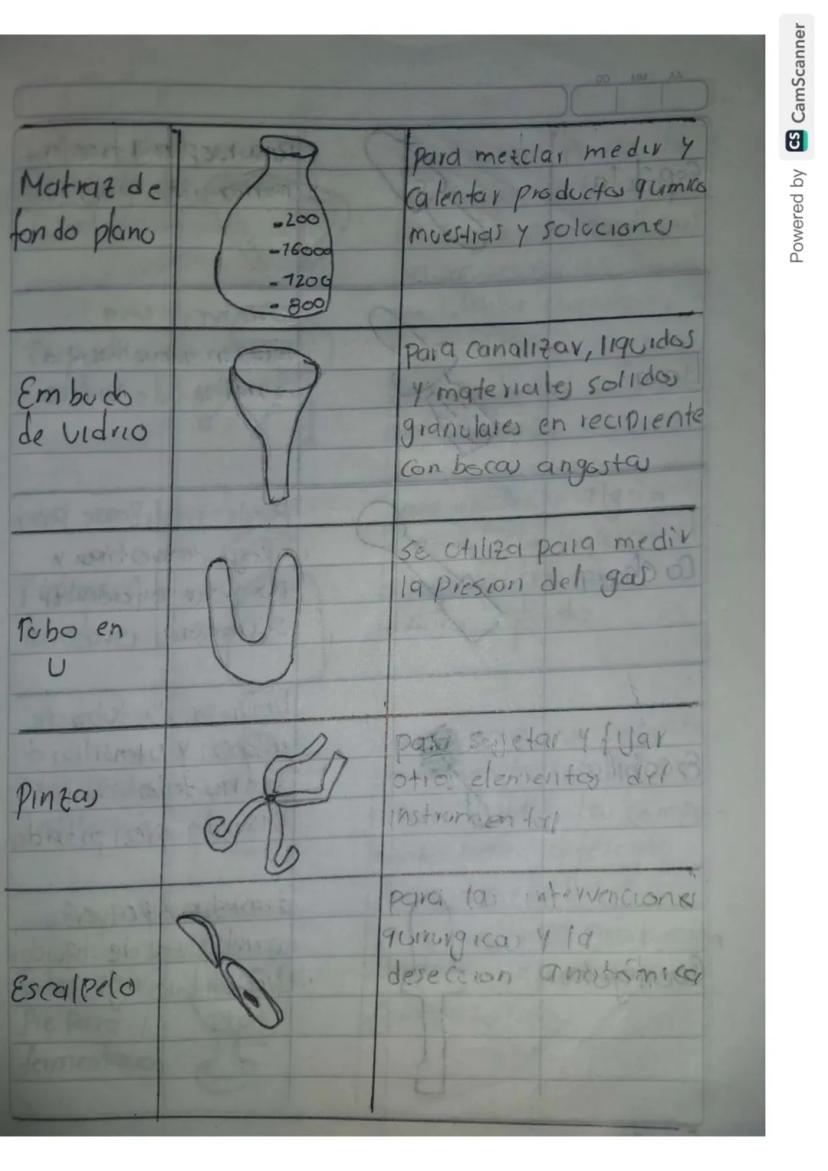 DD MM AA
Matraz de
fondo plano
-200
-1600
-1200
-800
Para mezclar medir y
Calentar productos quimico
muestras y solucione
Embudo
de vidrio
Para canalizar, liquidos
y materiales solidos
granulares en recipiente
con bocas angosta
Tubo en
U
se utiliza para medir
la presion del gas
Pinzas
para sujetar y fijar
otro elementos del
instrumental
Escalpelo
para las intervenciones
quirurgicas y la
deseccion anatomica
Powered by CS CamScanner